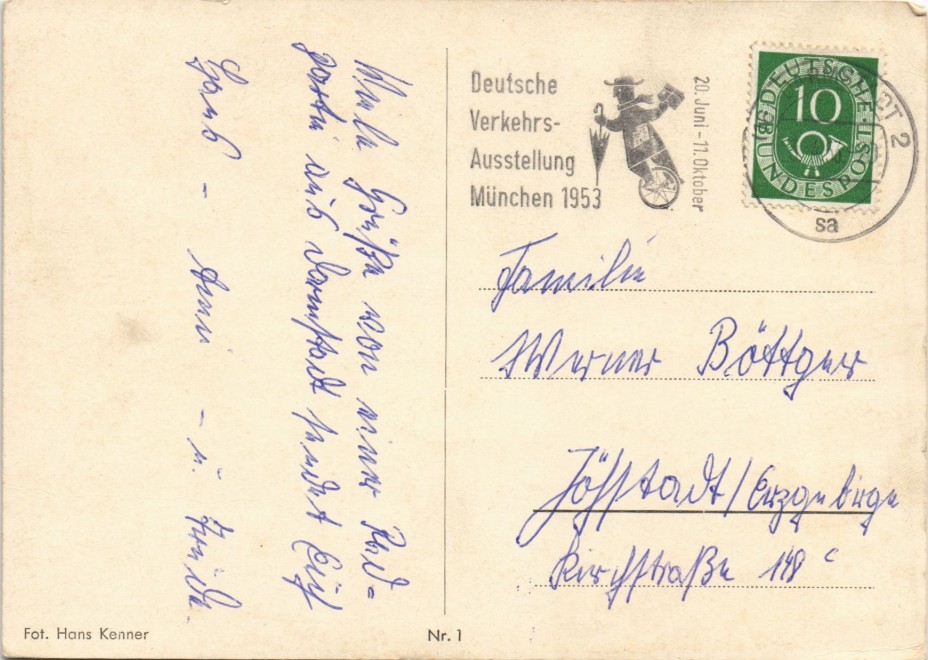 Viele Grüße von einer Rad-
partie aus Darmstadt sendet Euch
Hans - Anni - u. Frieda.
Deutsche
Verkehrs-
Ausstellung
München 1953
20. Juni - 11. Oktober
DEUTSCHE BUNDESPOST
10
2
sa
Familie
Werner Böttger
Jöhstadt/Erzgebirge
Kirchstraße 148 c
Fot. Hans Kenner
Nr. 1